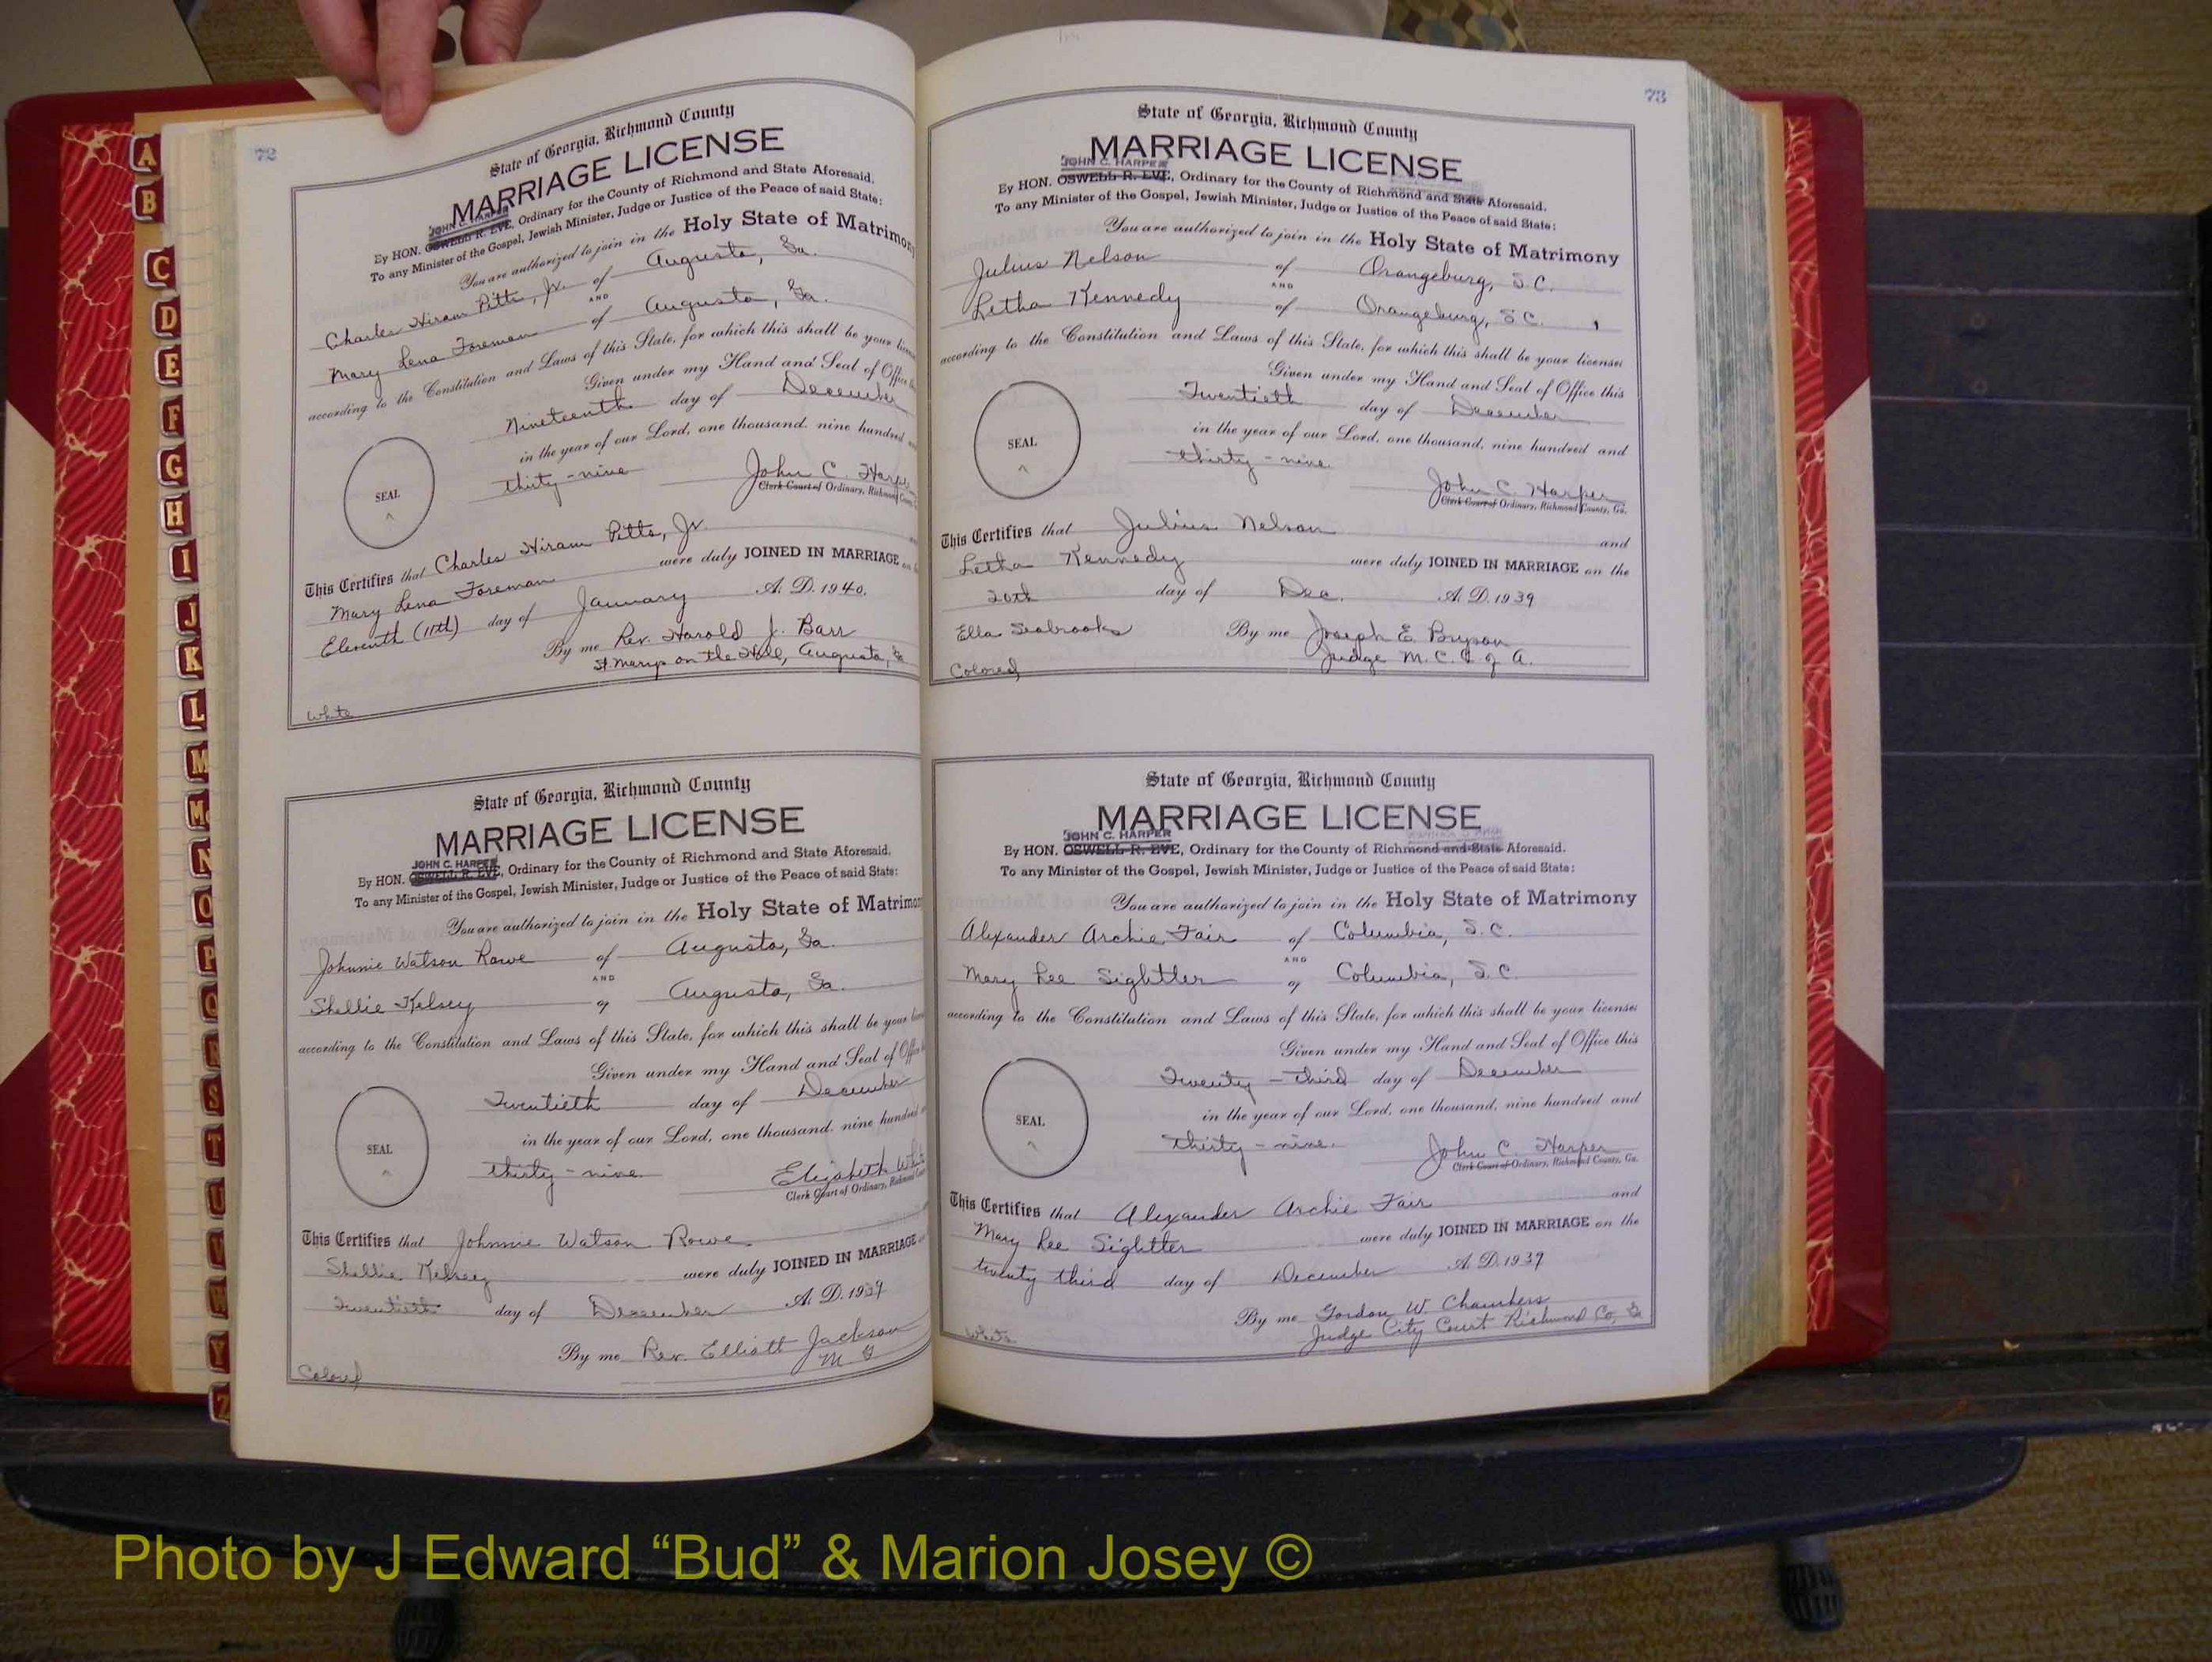 72
State of Georgia, Richmond County
MARRIAGE LICENSE
JOHN C. HARPER
By HON. OSWELL R. EVE, Ordinary for the County of Richmond and State Aforesaid.
To any Minister of the Gospel, Jewish Minister, Judge or Justice of the Peace of said State:
You are authorized to join in the Holy State of Matrimony
Charles Hiram Pitts, Jr. of Augusta, Ga.
AND
Mary Lena Foreman of Augusta, Ga.
according to the Constitution and Laws of this State, for which this shall be your
Given under my Hand and Seal of Office
Nineteenth day of December
in the year of our Lord, one thousand, nine hundred
thirty-nine
John C. Harper
SEAL
Clerk Court of Ordinary, Richmond
This Certifies that Charles Hiram Pitts, Jr.
Mary Lena Foreman were duly JOINED IN MARRIAGE
Eleventh (11th) day of January A. D. 1940.
By me Rev. Harold J. Barr
St Marys on the Hill, Augusta, Ga
White
State of Georgia, Richmond County
MARRIAGE LICENSE
JOHN C. HARPER
By HON. OSWELL R. EVE, Ordinary for the County of Richmond and State Aforesaid.
To any Minister of the Gospel, Jewish Minister, Judge or Justice of the Peace of said State:
You are authorized to join in the Holy State of Matrimon
Johnnie Watson Rowe of Augusta, Ga.
AND
Shellie Kelsey of Augusta, Ga.
according to the Constitution and Laws of this State, for which this shall be your
Given under my Hand and Seal of Office
Twentieth day of December
in the year of our Lord, one thousand, nine hundred
thirty-nine
Elizabeth
SEAL
Clerk Court of Ordinary, Richmond
This Certifies that Johnnie Watson Rowe
Shellie Kelsey were duly JOINED IN MARRIAGE
Twentieth day of December A. D. 1939
By me Rev. Elliott Jackson
M G
Colored
73
State of Georgia, Richmond County
MARRIAGE LICENSE
JOHN C. HARPER
By HON. OSWELL R. EVE, Ordinary for the County of Richmond and State Aforesaid.
To any Minister of the Gospel, Jewish Minister, Judge or Justice of the Peace of said State:
You are authorized to join in the Holy State of Matrimony
Julius Nelson of Orangeburg, S.C.
AND
Letha Kennedy of Orangeburg, S.C.
according to the Constitution and Laws of this State, for which this shall be your licenses
Given under my Hand and Seal of Office this
Twentieth day of December
in the year of our Lord, one thousand, nine hundred and
thirty-nine.
John C. Harper
SEAL
Clerk Court of Ordinary, Richmond County, Ga.
This Certifies that Julius Nelson and
Letha Kennedy were duly JOINED IN MARRIAGE on the
20th day of Dec. A. D. 1939
Ella Seabrooks By me Joseph E. Bryson
Judge M. C. C. of A.
Colored
State of Georgia, Richmond County
MARRIAGE LICENSE
JOHN C. HARPER
By HON. OSWELL R. EVE, Ordinary for the County of Richmond and State Aforesaid.
To any Minister of the Gospel, Jewish Minister, Judge or Justice of the Peace of said State:
You are authorized to join in the Holy State of Matrimony
Alexander Archie Fair of Columbia, S.C.
AND
Mary Lee Siglitter of Columbia, S.C.
according to the Constitution and Laws of this State, for which this shall be your licenses
Given under my Hand and Seal of Office this
Twenty-third day of December
in the year of our Lord, one thousand, nine hundred and
thirty-nine.
John C. Harper
SEAL
Clerk Court of Ordinary, Richmond County, Ga.
This Certifies that Alexander Archie Fair and
Mary Lee Siglitter were duly JOINED IN MARRIAGE on the
twenty third day of December A. D. 1939
By me Gordon W. Chambers
Judge City Court Richmond Co, Ga
White
A
B
C
D
E
F
G
H
I
J
K
L
M
Mc
N
O
P
Q
R
S
T
U
V
W
Y
Z
Photo by J Edward “Bud” & Marion Josey ©